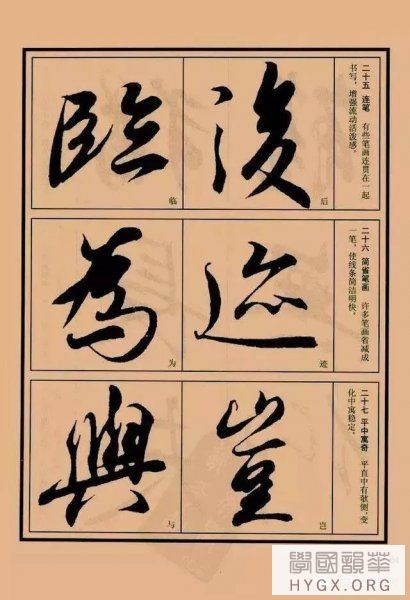 二十五 连笔 有些笔画连贯在一起
书写,增强流动活泼感。
後
后
臨
临
二十六 简省笔画 许多笔画省减成
一笔,使线条简洁明快。
迹
迹
為
为
二十七 平中寓奇 平直中有欹侧,变
化中寓稳定。
豈
岂
與
与
學國韻華
HYGX.ORG